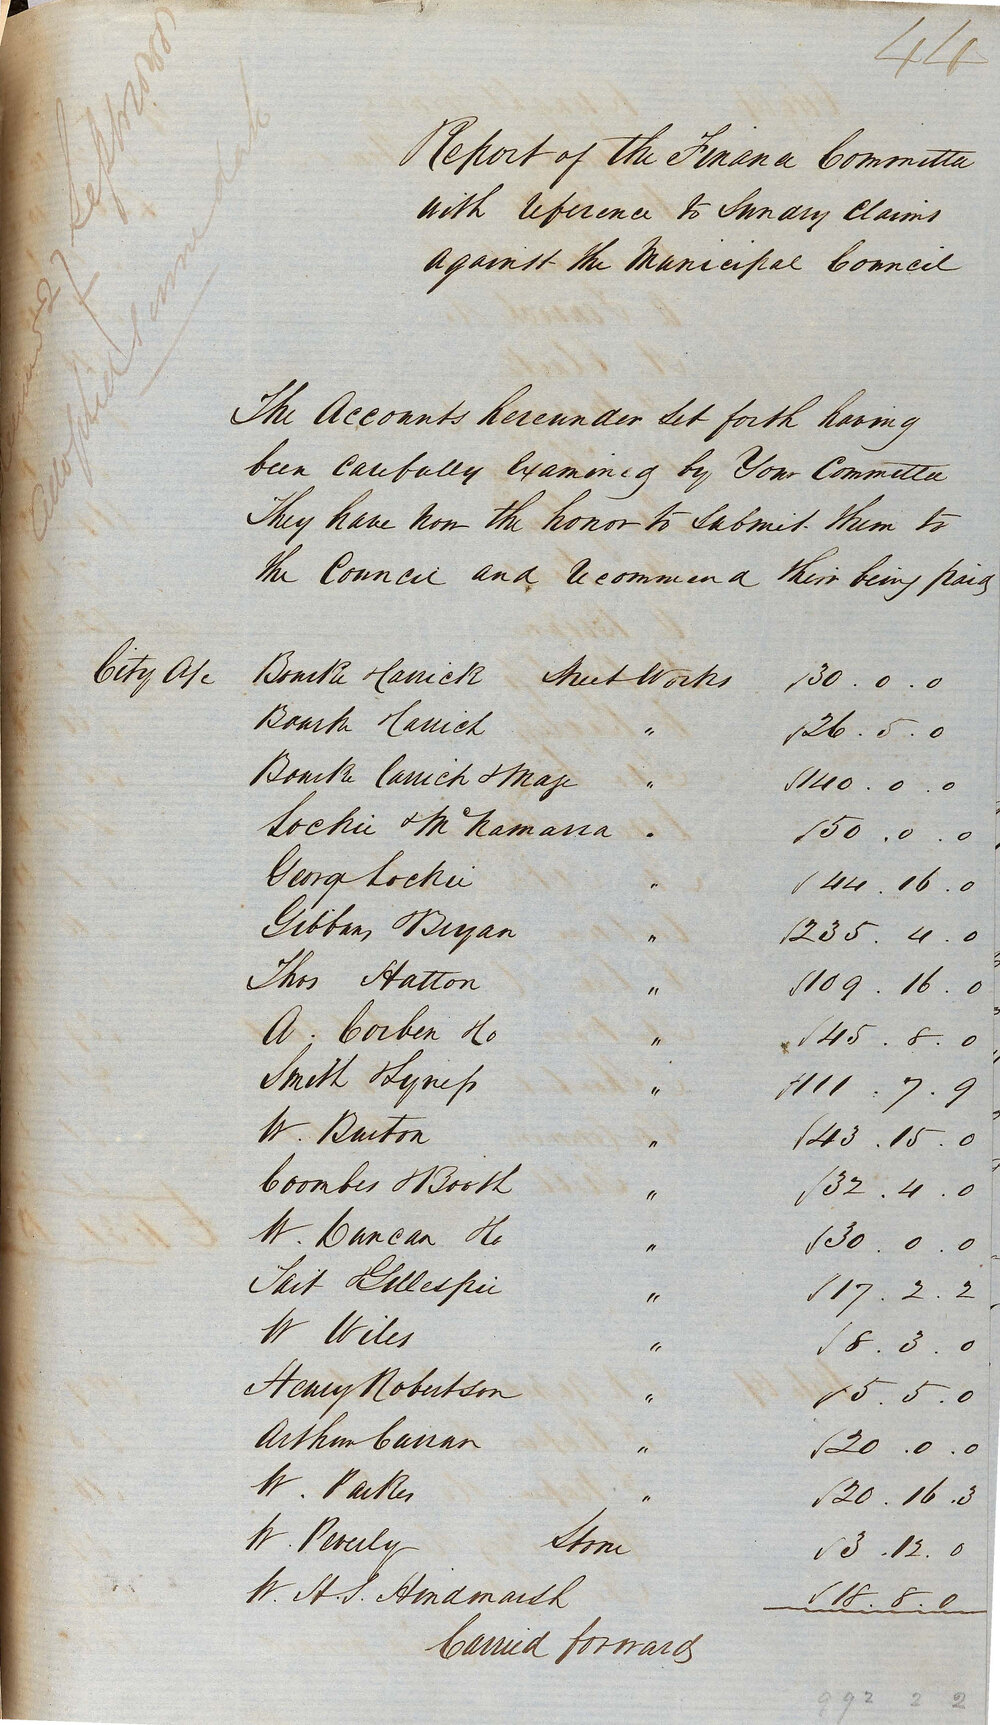 44
Septbr 1858
Adopted same date
Report of the Finance Committee
with reference to Sundry Claims
against the Municipal Council
The Accounts hereunder set forth having
been Carefully Examined by Your Committee
They have now the honor to Submit them to
the Council and recommend their being paid
City A/c Bourke & Carrick Street Works £30.0.0
Bourke & Carrick " £26.5.0
Bourke Carrick & " £140.0.0
Lockie & McNamarra " £50.0.0
George Lockie " £44.16.0
Gibbons & Bryan " £235.4.0
Thos Hatton " £109.16.0
A. Corben & Co " £45.8.0
Smith & " £111.7.9
W. Burton " £43.15.0
Coombes & Booth " £32.4.0
W. Duncan & Co " £30.0.0
Tait & Gillespie " £17.2.2
W Wiles " £8.3.0
Henry Robertson " £5.5.0
Arthur Curran " £20.0.0
W. Parkes " £20.16.3
W. Peverly Stone £3.12.0
W. H. S. Hindmarsh £18.8.0
Carried forward
992 2 2